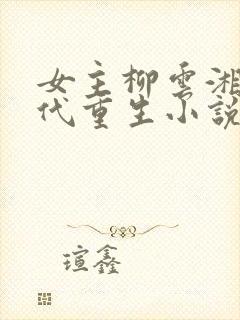 女主柳雲湘
代重生小說
瑄鑫